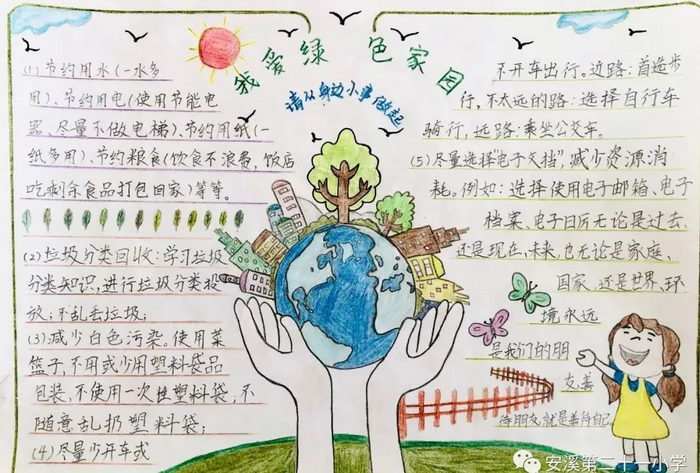 我爱绿色家园
请从身边小事做起
(1)节约用水(一水多
用)、节约用电(使用节能电
器、尽量不做电梯)、节约用纸(一
纸多用)、节约粮食(饮食不浪费,饭店
吃剩余食品打包回家)等等。
(2)垃圾分类回收:学习垃圾
分类知识,进行垃圾分类投
放;不乱丢垃圾;
(3)减少白色污染。使用菜
篮子,不用或少用塑料袋品
包装,不使用一次性塑料袋,不
随意乱扔塑料袋;
(4)尽量少开车或
不开车出行。边路:首选步
行,不太远的路:选择自行车
骑行,远路:乘坐公交车。
(5)尽量选择"电子文档",减少资源消
耗。例如:选择使用电子邮箱、电子
档案、电子日历无论是过去、
还是现在,未来,也无论是家庭、
国家,还是世界,环
境永远
是我们的朋
友,善
待朋友,就是善待自己
安溪第二十一小学